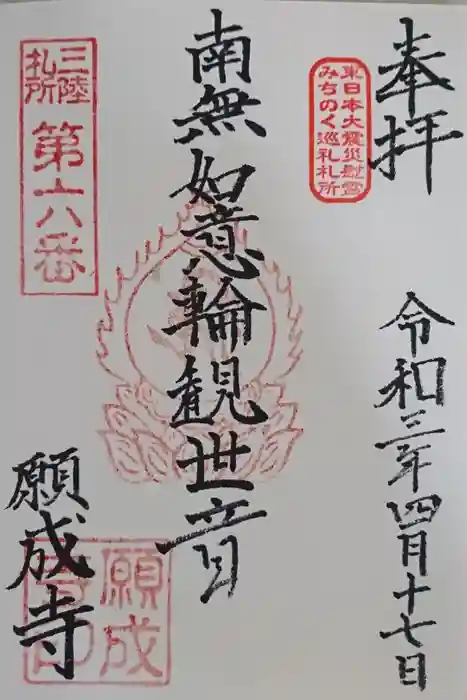 奉拝
東日本大震災慰霊
みちのく巡礼札所
令和三年四月十七日
南無如意輪観世音
三陸
札所
第六八番
願成寺
願成
寺印